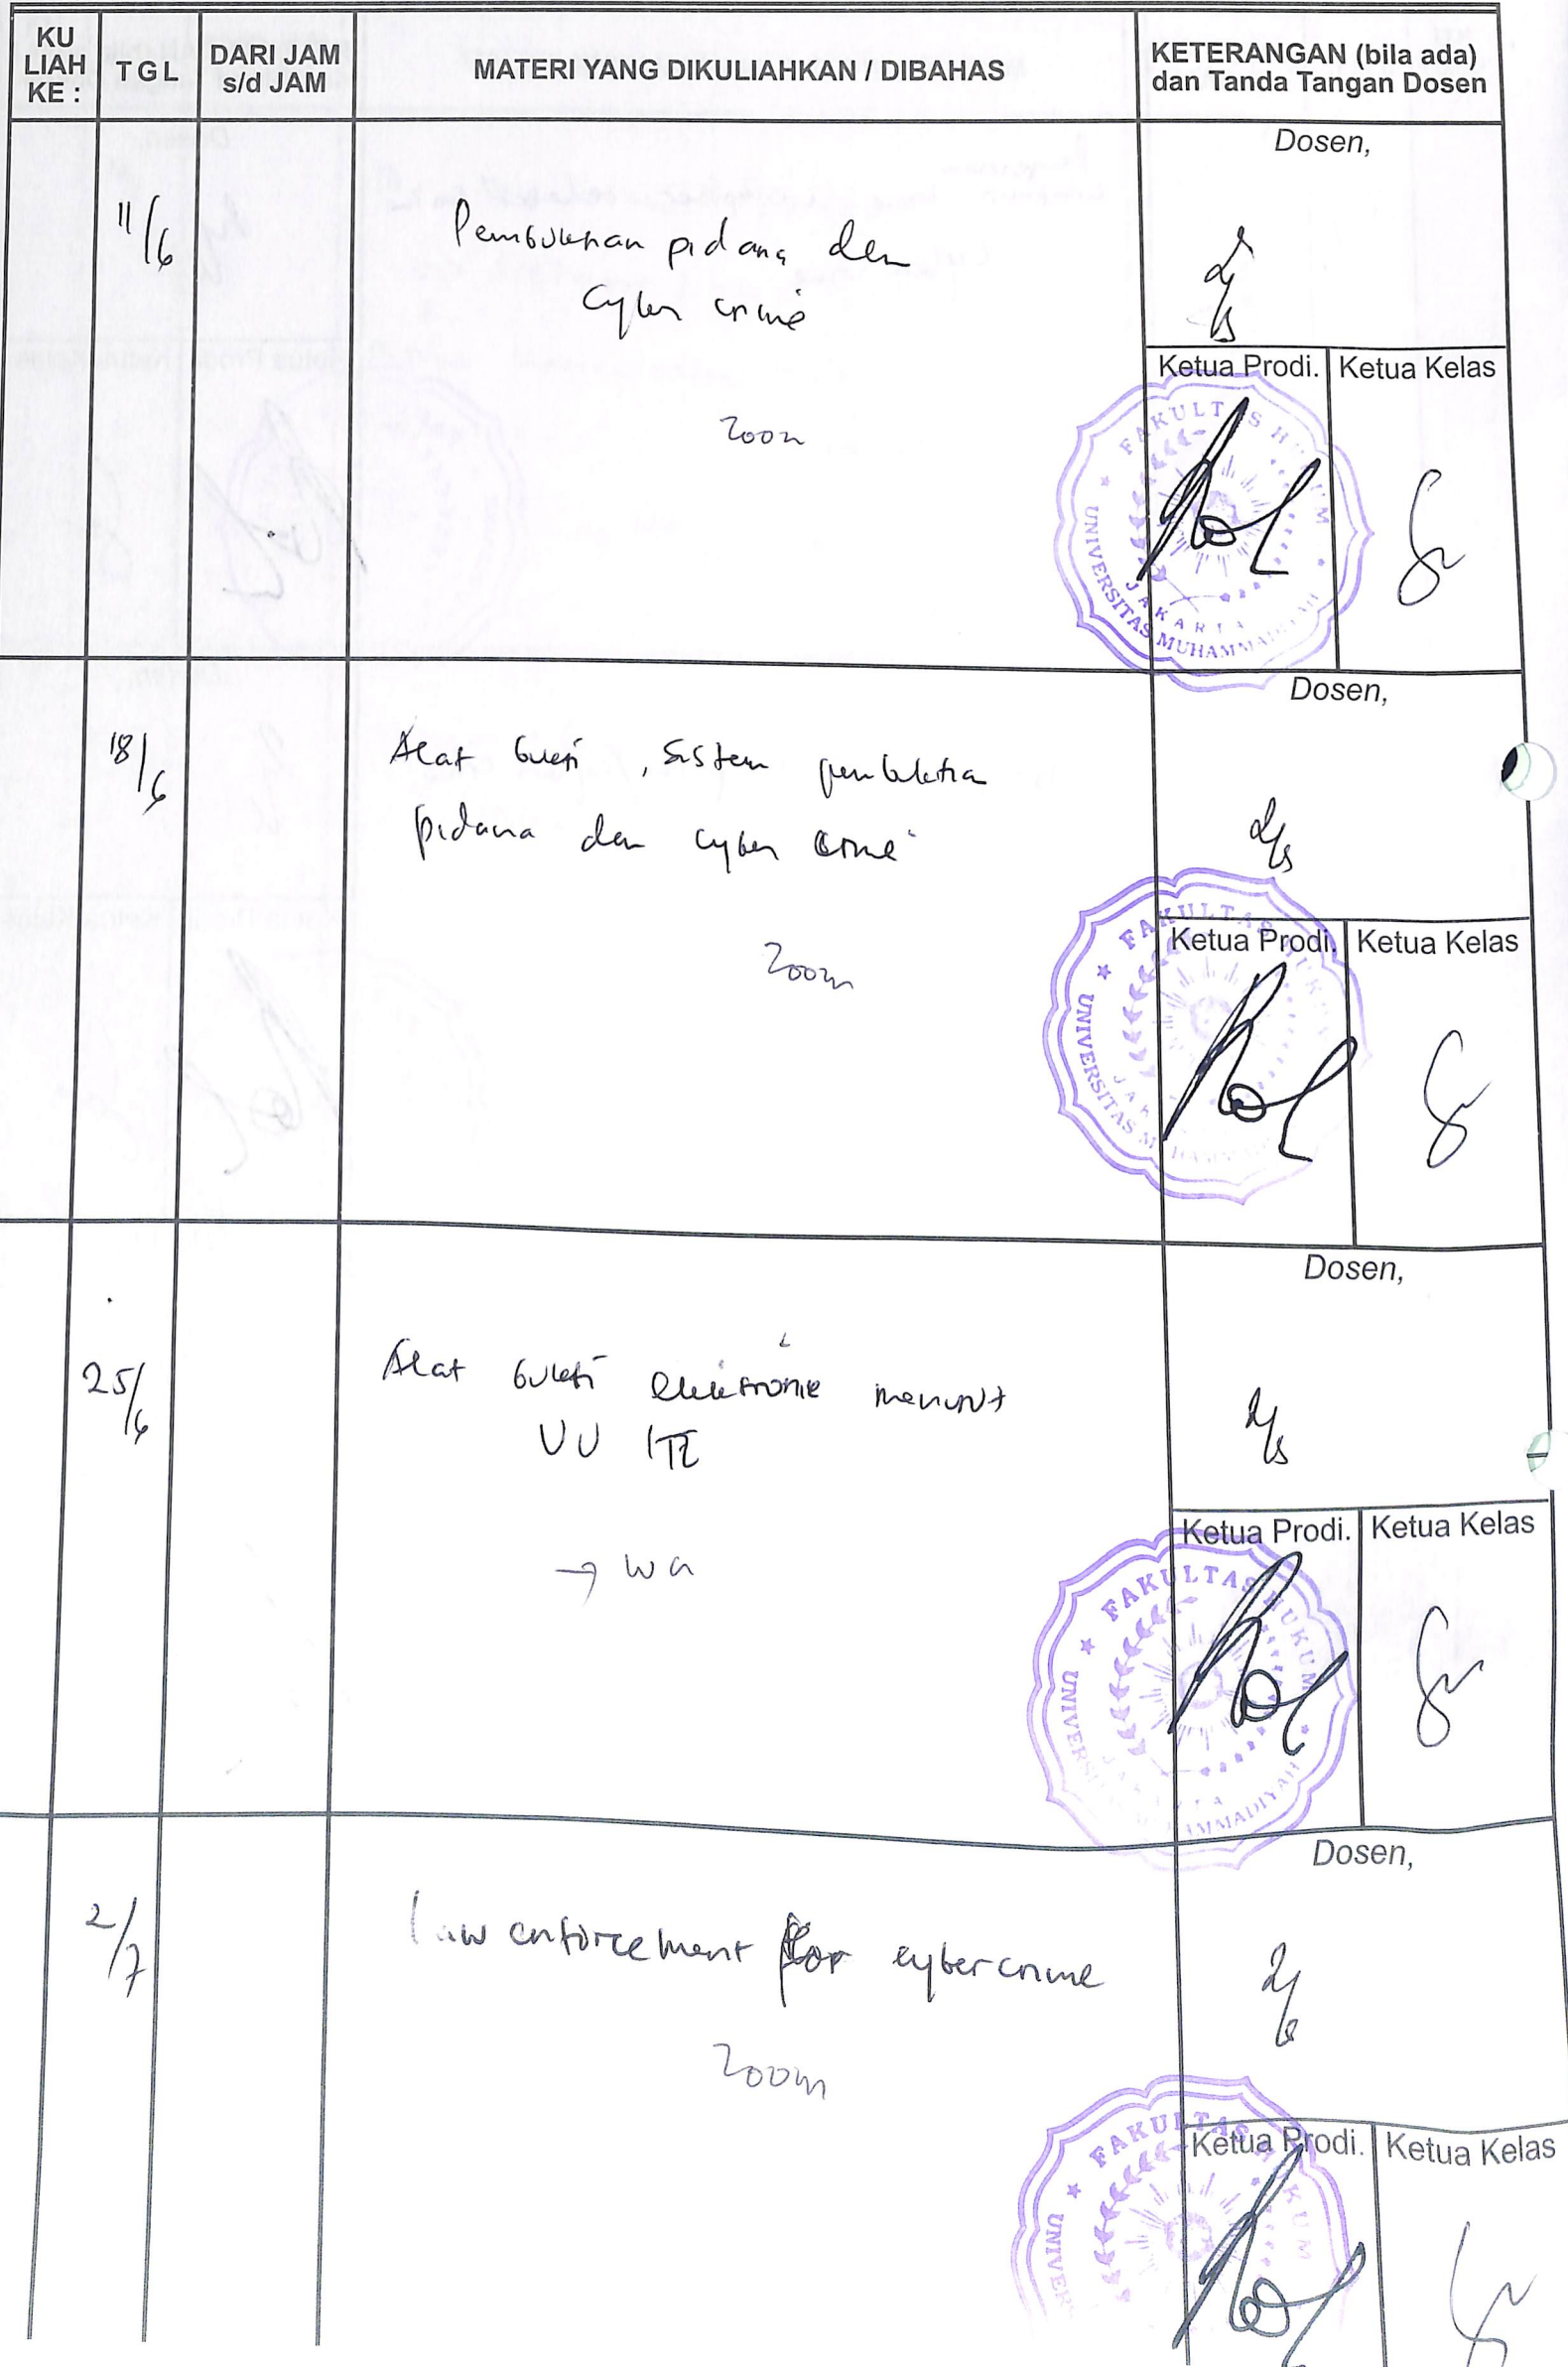 KU LIAH KE :
T G L
DARI JAM s/d JAM
MATERI YANG DIKULIAHKAN / DIBAHAS
KETERANGAN (bila ada) dan Tanda Tangan Dosen
Dosen,
11/6
Pembuktian pidana dan
cyber crime
Zoom
Ketua Prodi.
Ketua Kelas
FAKULTAS HUKUM
UNIVERSITAS MUHAMMADIYAH
JAKARTA
Dosen,
18/6
Alat bukti, sistem pembuktia
pidana dan cyber crime
Zoom
Ketua Prodi.
Ketua Kelas
FAKULTAS HUKUM
UNIVERSITAS MUHAMMADIYAH
Dosen,
25/6
Alat bukti elektronik menurut
UU ITE
→ wa
Ketua Prodi.
Ketua Kelas
FAKULTAS HUKUM
UNIVERSITAS MUHAMMADIYAH
JAKARTA
Dosen,
2/7
law enforcement for cybercrime
Zoom
Ketua Prodi.
Ketua Kelas
FAKULTAS HUKUM